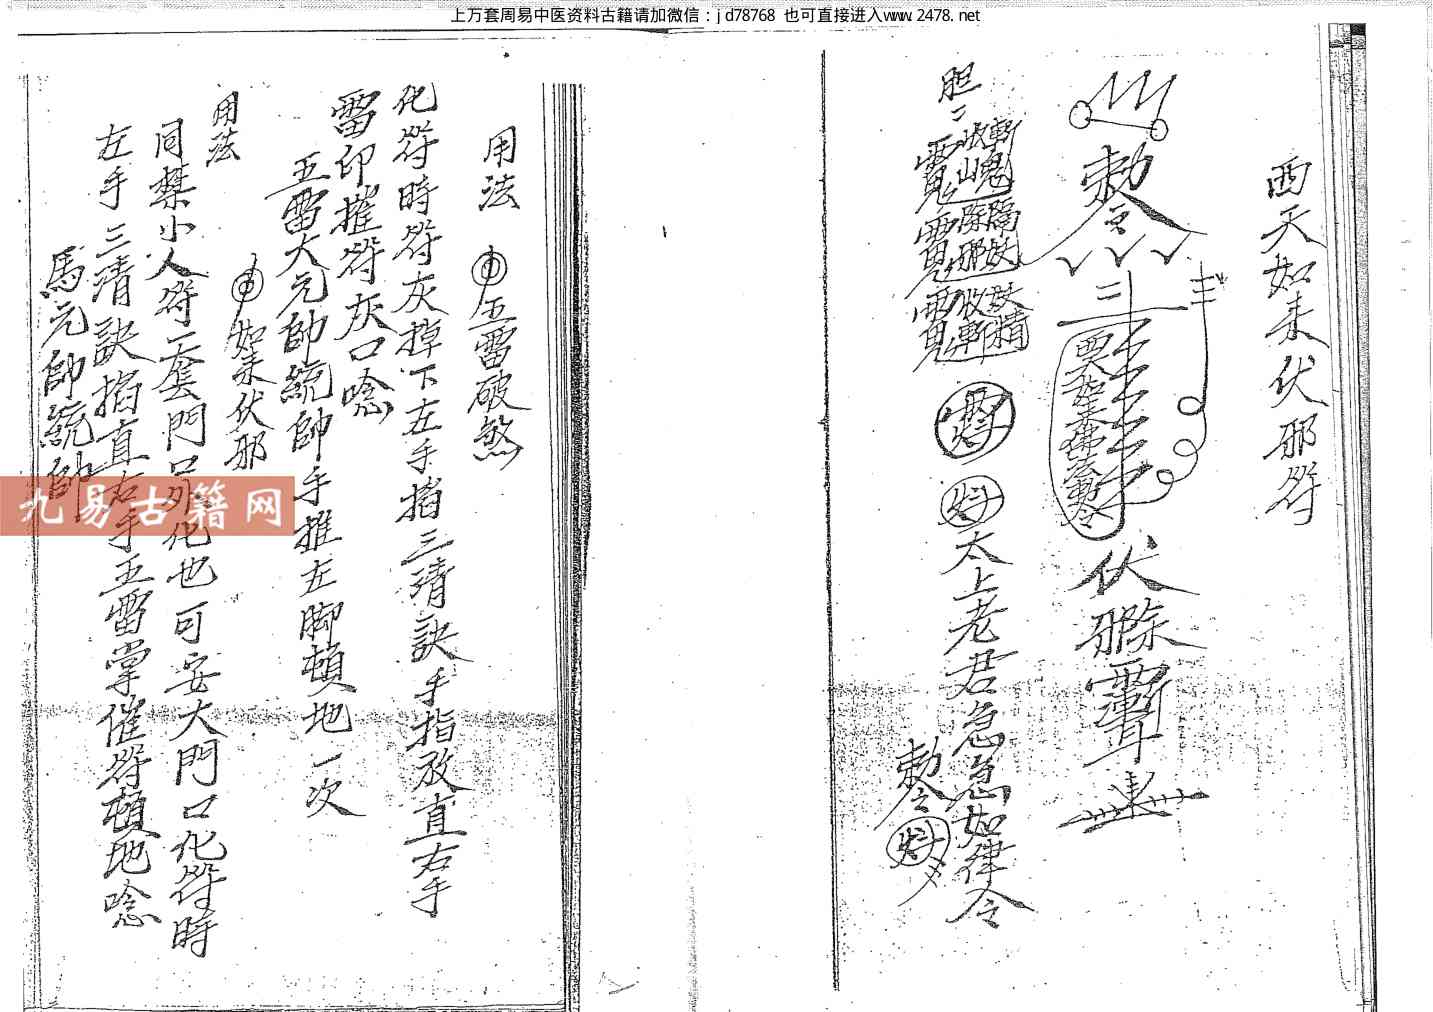 上万套周易中医资料古籍请加微信：jd78768 也可直接进入www.2478.net
西天如来伏邪符
勅令
西天如来佛法斬令
伏邪除
胆
太上老君急急如律令
勅令
用法
五雷破煞
化符時符灰掉下左手掐三清訣手指放直右手
雷印摧符灰口唸
五雷大元帥統帥手推左脚頓地一次
用法
如来伏邪
同禁小人符一套門口外化也可安大門口化符時
左手三清訣掐直右手五雷掌催符頓地唸
馬元帥統帥
九易古籍网